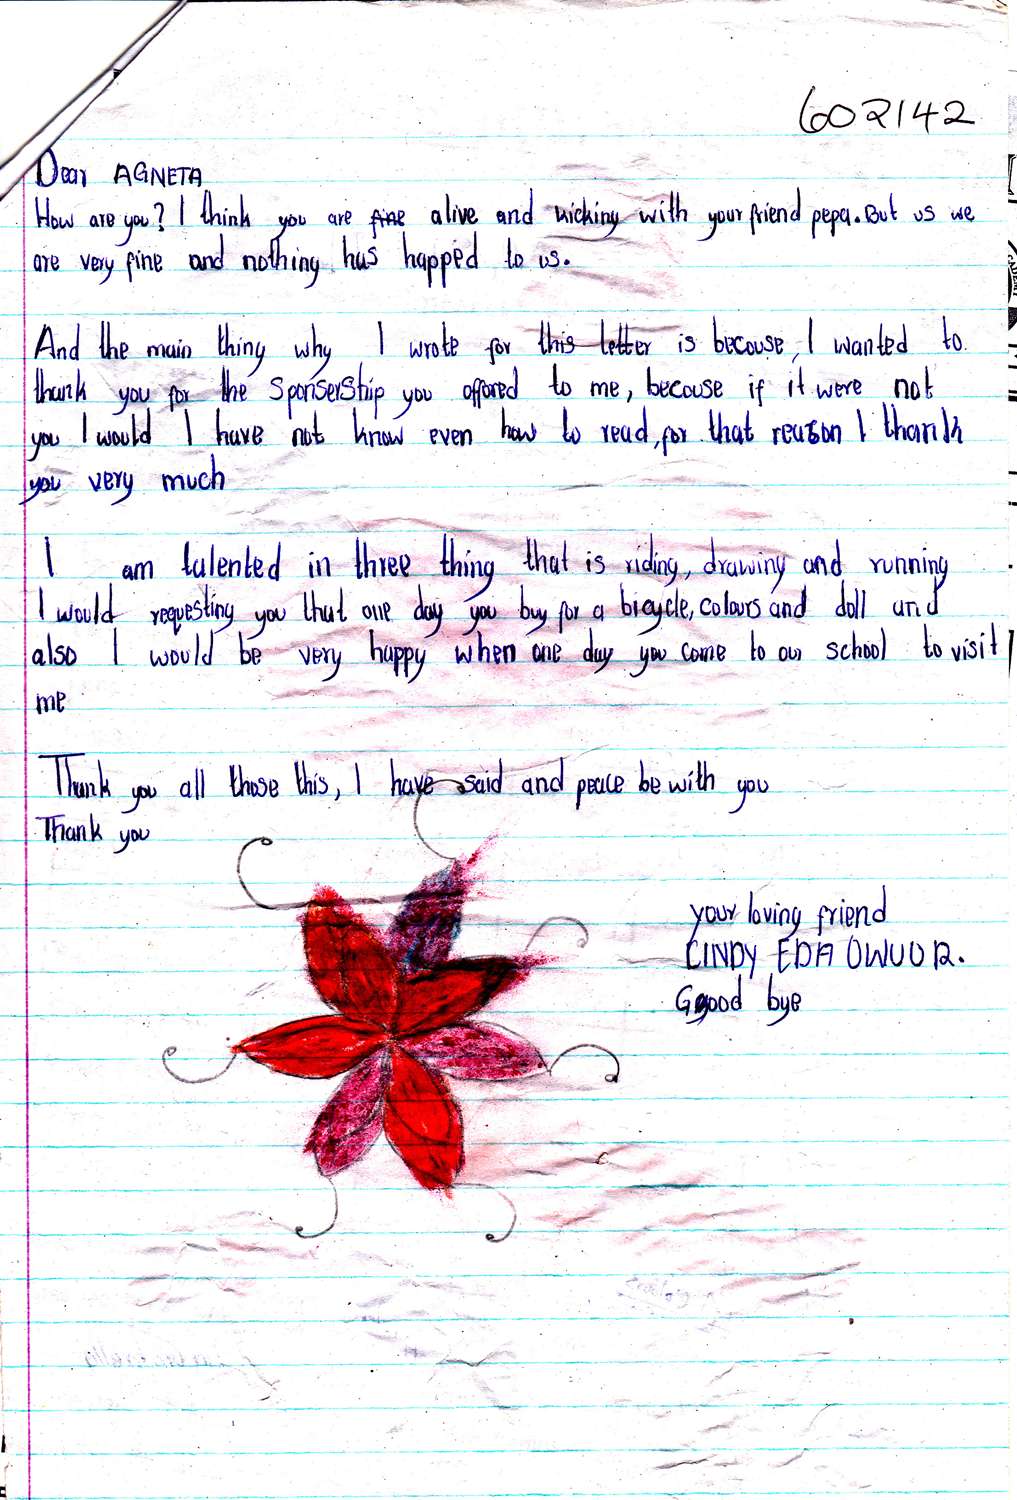 602142
Dear AGNETA
How are you? I think you are fine alive and kicking with your friend pepa. But us we
are very fine and nothing has happed to us.
And the main thing why I wrote for this letter is becouse, I wanted to
thank you for the Sponsership you offored to me, becouse if it were not
you I would I have not know even how to read, for that reason I thank
you very much
I am talented in three thing that is riding, drawing and running
I would requesting you that one day you buy for a bicycle, colours and doll and
also I would be very happy when one day you come to our school to visit
me
Thank you all those this, I have said and peace be with you
Thank you
your loving friend
CINDY EDA OWUOR.
Ggood bye